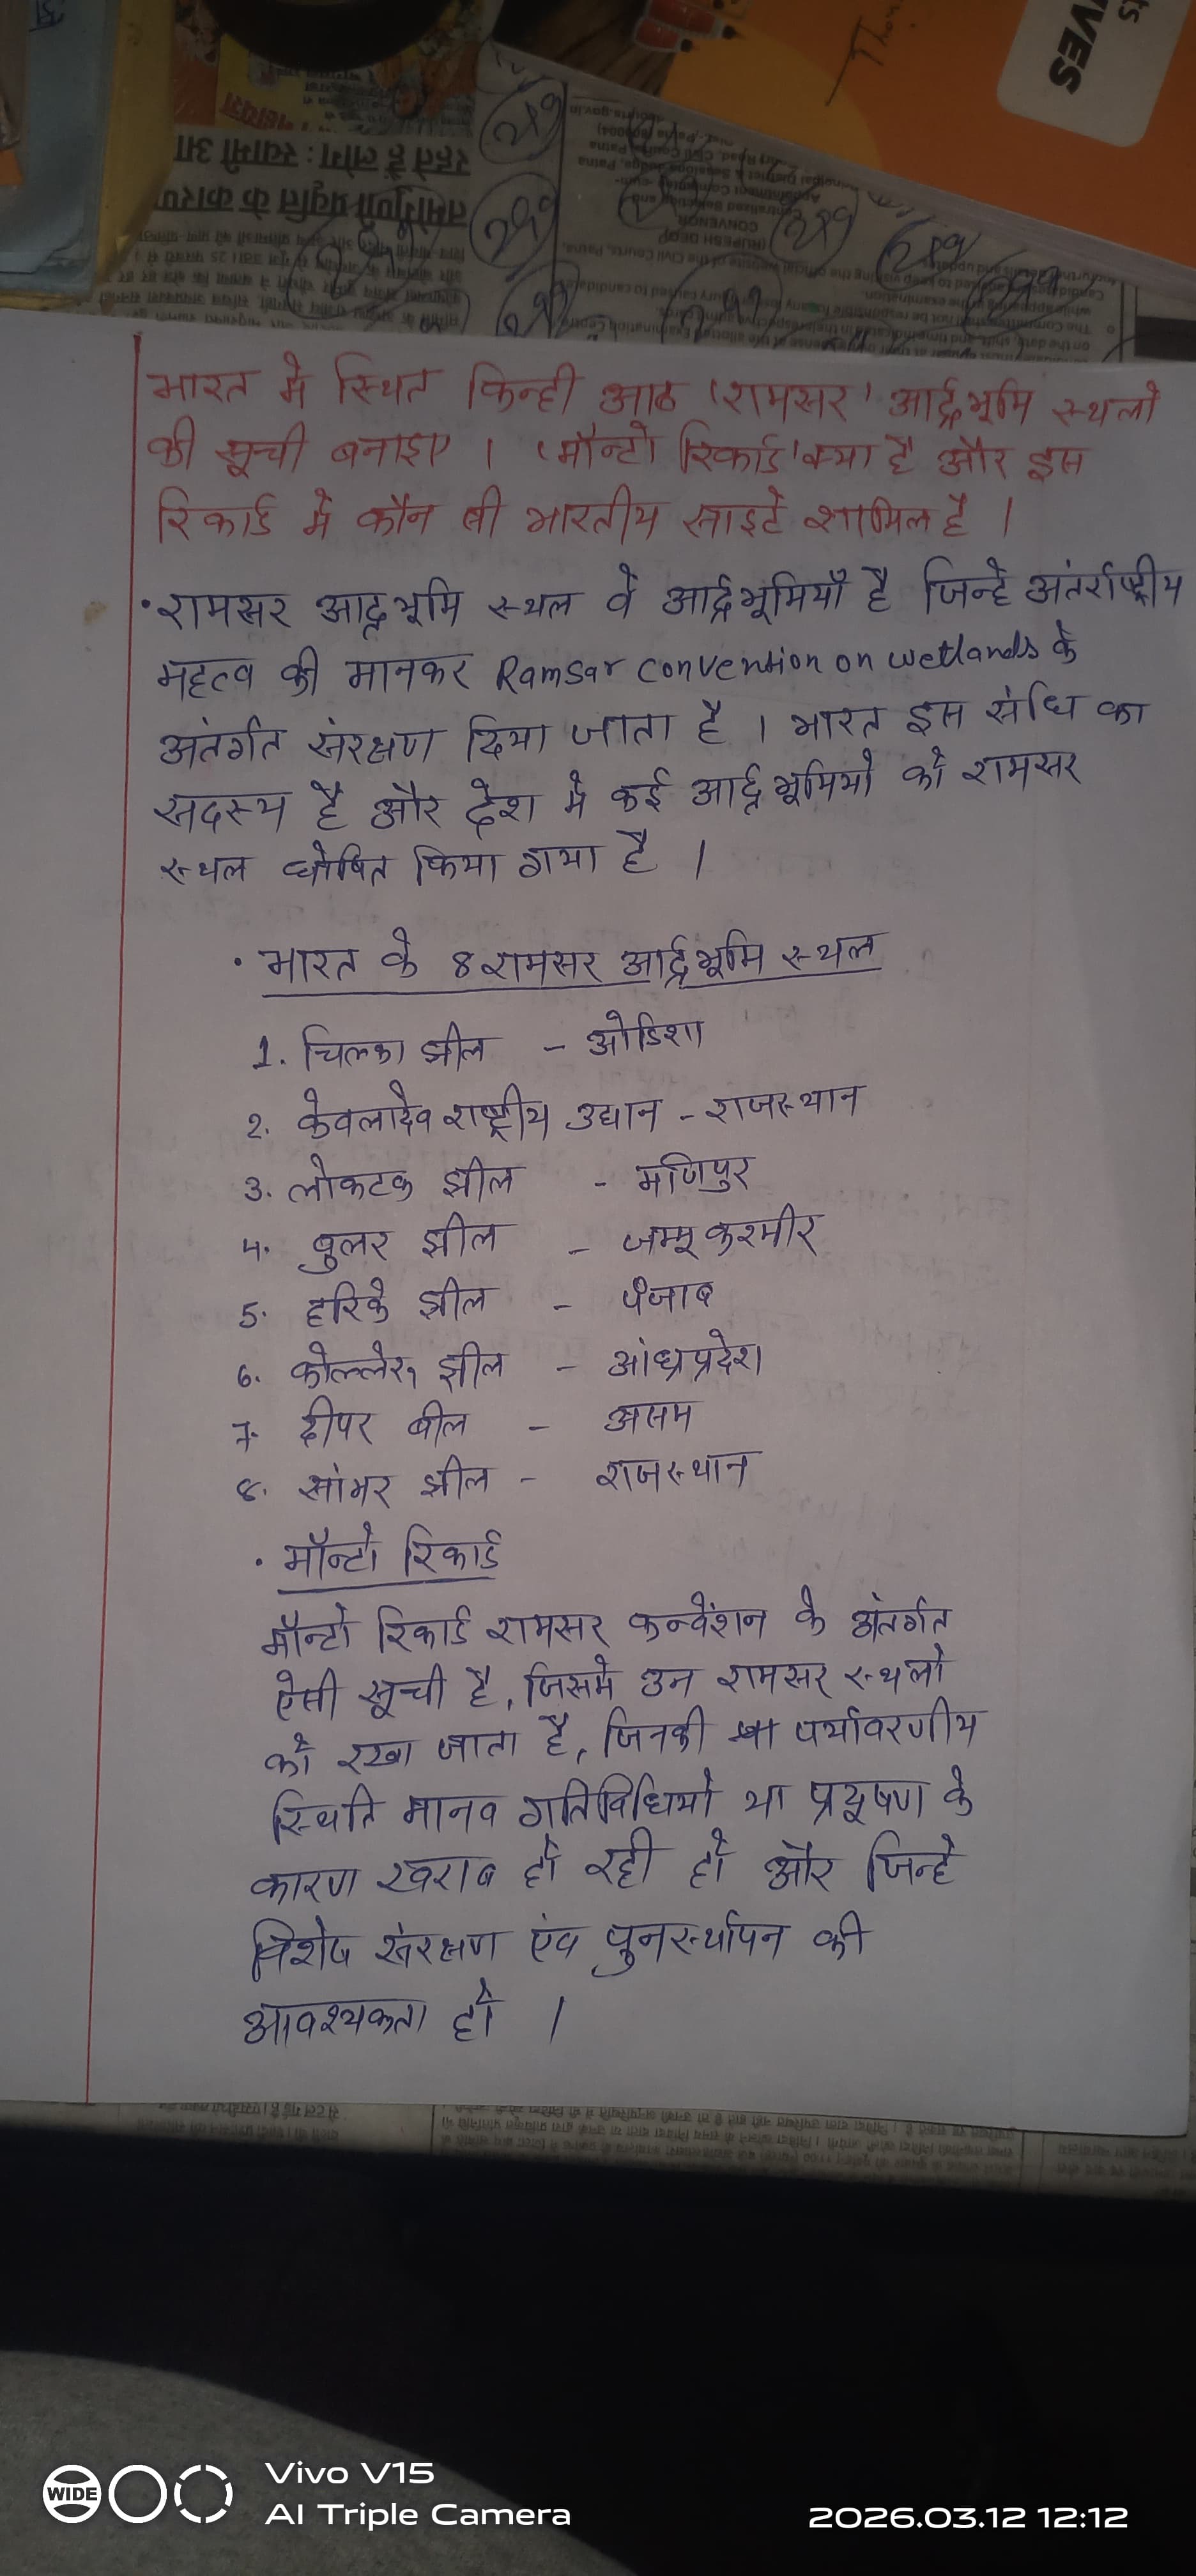 ts
VES
भारत मे स्थित किन्ही आठ 'रामसर' आर्द्रभूमि स्थलो
की सूची बनाइए । 'मौन्टो रिकार्ड' क्या है और इस
रिकार्ड मे कौन सी भारतीय साइटे शामिल है ।
• रामसर आद्रभूमि स्थल वे आर्द्रभूमियाँ है जिन्हे अंतर्राष्ट्रीय
महत्व की मानकर Ramsar convention on wetlands के
अंतर्गत संरक्षण दिया जाता है । भारत इस संधि का
सदस्य है और देश मे कई आर्द्रभूमियो को रामसर
स्थल घोषित किया गया है ।
• भारत के 8 रामसर आर्द्रभूमि स्थल
1. चिल्का झील - ओडिशा
2. केवलादेव राष्ट्रीय उद्यान - राजस्थान
3. लोकटक झील - मणिपुर
4. वुलर झील - जम्मू कश्मीर
5. हरिके झील - पंजाब
6. कोल्लेरु झील - आंध्रप्रदेश
7. दीपर बील - असम
8. सांभर झील - राजस्थान
• मॉन्टो रिकार्ड
मॉन्टो रिकार्ड रामसर कन्वेंशन के अंतर्गत
ऐसी सूची है, जिसमे उन रामसर स्थलो
को रखा जाता है, जिनकी पर्यावरणीय
स्थिति मानव गतिविधियो या प्रदूषण के
कारण खराब हो रही हो और जिन्हे
विशेष संरक्षण एंव पुनर्स्थापन की
आवश्यकता हो ।
WIDE
Vivo V15
AI Triple Camera
2026.03.12 12:12